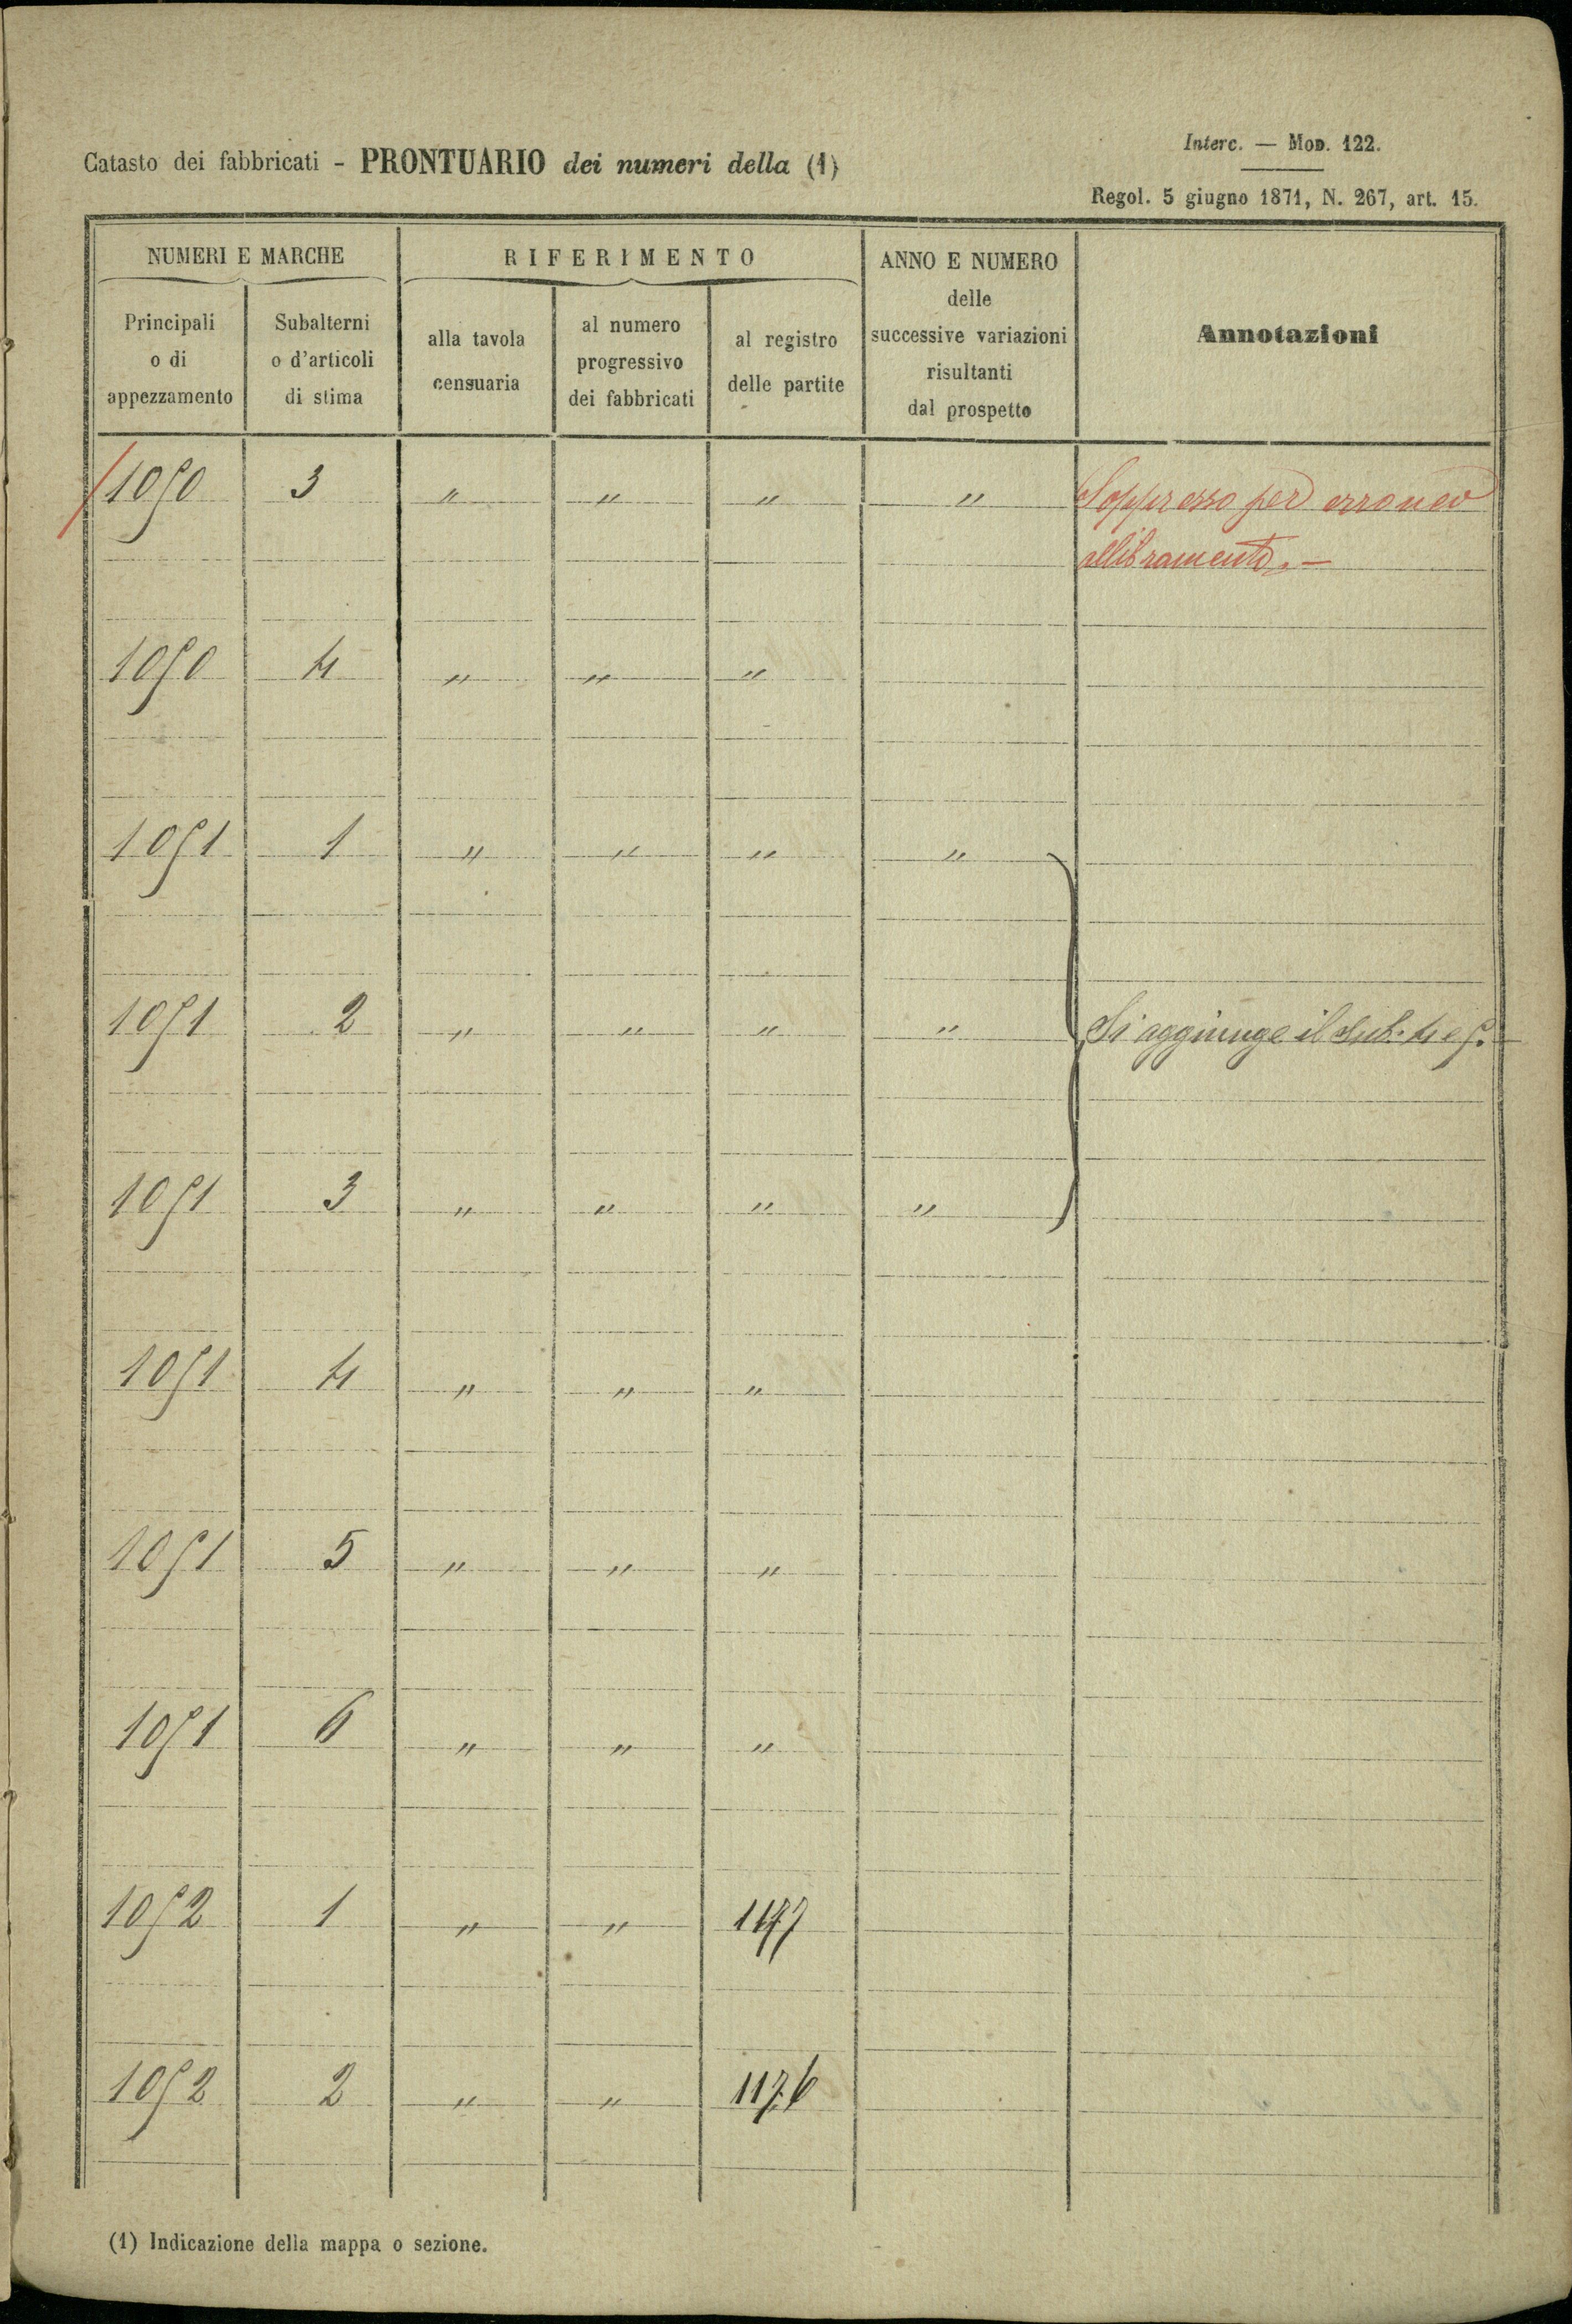 Catasto dei fabbricati - PRONTUARIO dei numeri della (1)
Interc. — Mod. 122.
Regol. 5 giugno 1871, N. 267, art. 15.
NUMERI E MARCHE
RIFERIMENTO
ANNO E NUMERO
delle
successive variazioni
risultanti
dal prospetto
Annotazioni
Principali
o di
appezzamento
Subalterni
o d'articoli
di stima
alla tavola
censuaria
al numero
progressivo
dei fabbricati
al registro
delle partite
1050 3 " " " " Soppresso per erroneo
allibramento. —
1050 4 " " "
1051 1 " " " "
1051 2 " " " " Si aggiunge il sub. 4 e 5.
1051 3 " " " "
1051 4 " " "
1051 5 " " "
1051 6 " " "
1052 1 " "
1052 2 " " 1176
(1) Indicazione della mappa o sezione.